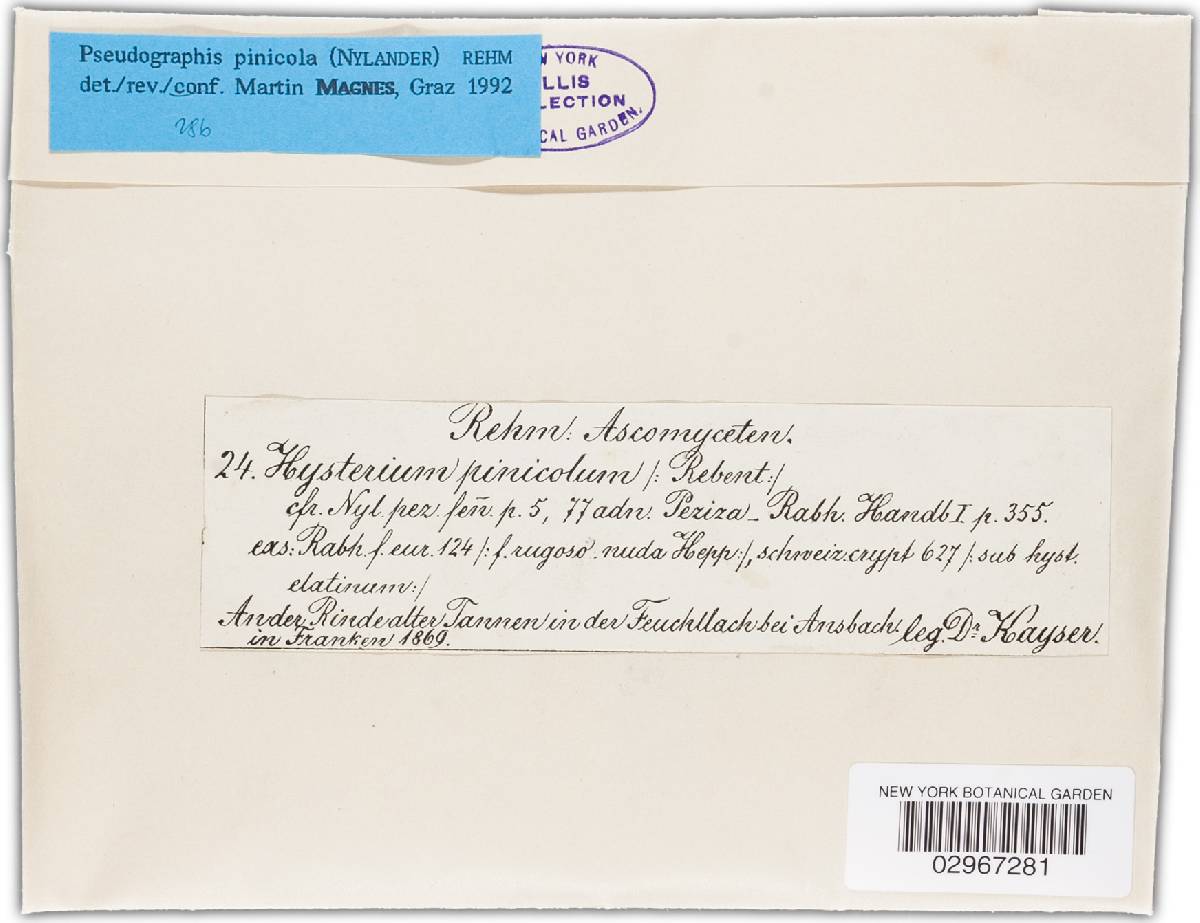 Pseudographis pinicola (NYLANDER) REHM
det./rev./conf. Martin MAGNES, Graz 1992
286
W YORK
LLIS
LECTION
CAL GARDEN.
Rehm: Ascomyceten.
24. Hysterium pinicolum /: Rebent:/
cfr. Nyl. pez. fen̄. p. 5, 77 adn. Peziza - Rabh. Handb I p. 355.
exs: Rabh. f. eur. 124 /: f. rugoso-nuda Hepp:/, schweiz. crypt 627 /: sub hyst.
elatinum:/
An der Rinde alter Tannen in der Feuchtlach bei Ansbach leg. Dr Kayser.
in Franken 1869.
NEW YORK BOTANICAL GARDEN
02967281